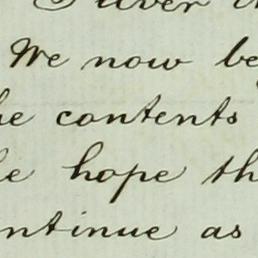 We now be
he contents
he hope th
ntinue as